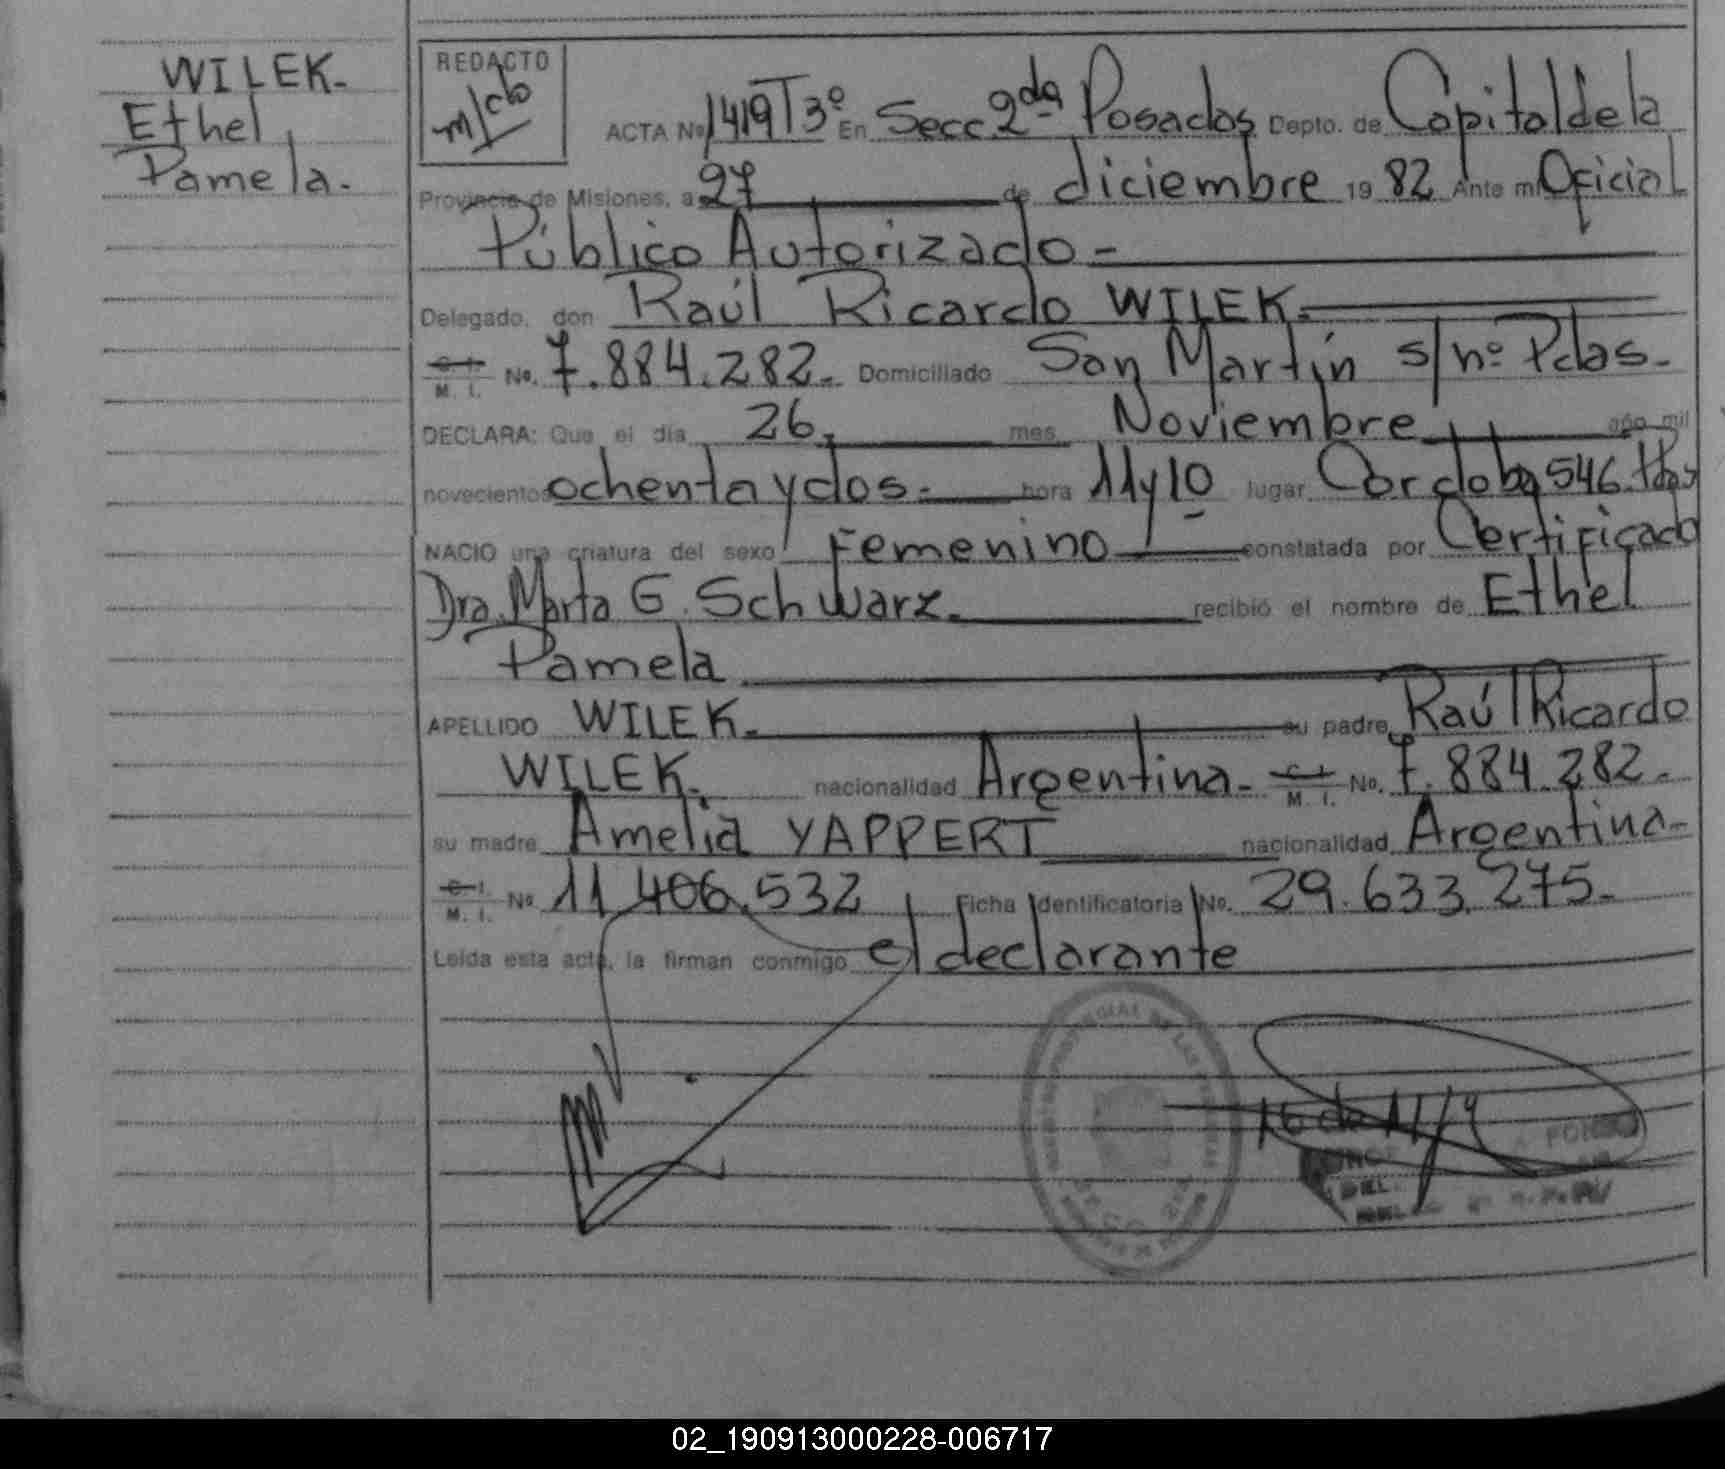 WILEK.
Ethel
Pamela.
REDACTO
ACTA Nº 1419 T3º En Secc 2da Posadas Depto. de Capital de la
Provincia de Misiones, a 27 de diciembre 19 82 Ante mi Oficial
Público Autorizado -
Delegado, don Raúl Ricardo WILEK.
C. I. M. I. No. 7.884.282. Domiciliado San Martín s/nº Pdas.
DECLARA: Que el día 26. mes Noviembre año mil
novecientos ochenta y dos. hora 11 y 10 lugar Cordoba 546 Pdas
NACIO una criatura del sexo Femenino constatada por Certificado
Dra. Marta G. Schwarz. recibió el nombre de Ethel
Pamela
APELLIDO WILEK. su padre Raúl Ricardo
WILEK. nacionalidad Argentina. C. I. M. I. No. 7.884.282.
su madre Amelia YAPPERT nacionalidad Argentina.
C. I. M. I. No 11.406.532 Ficha Identificatoria No. 29.633.275.
Leída esta acta, la firman conmigo el declarante
02_190913000228-006717